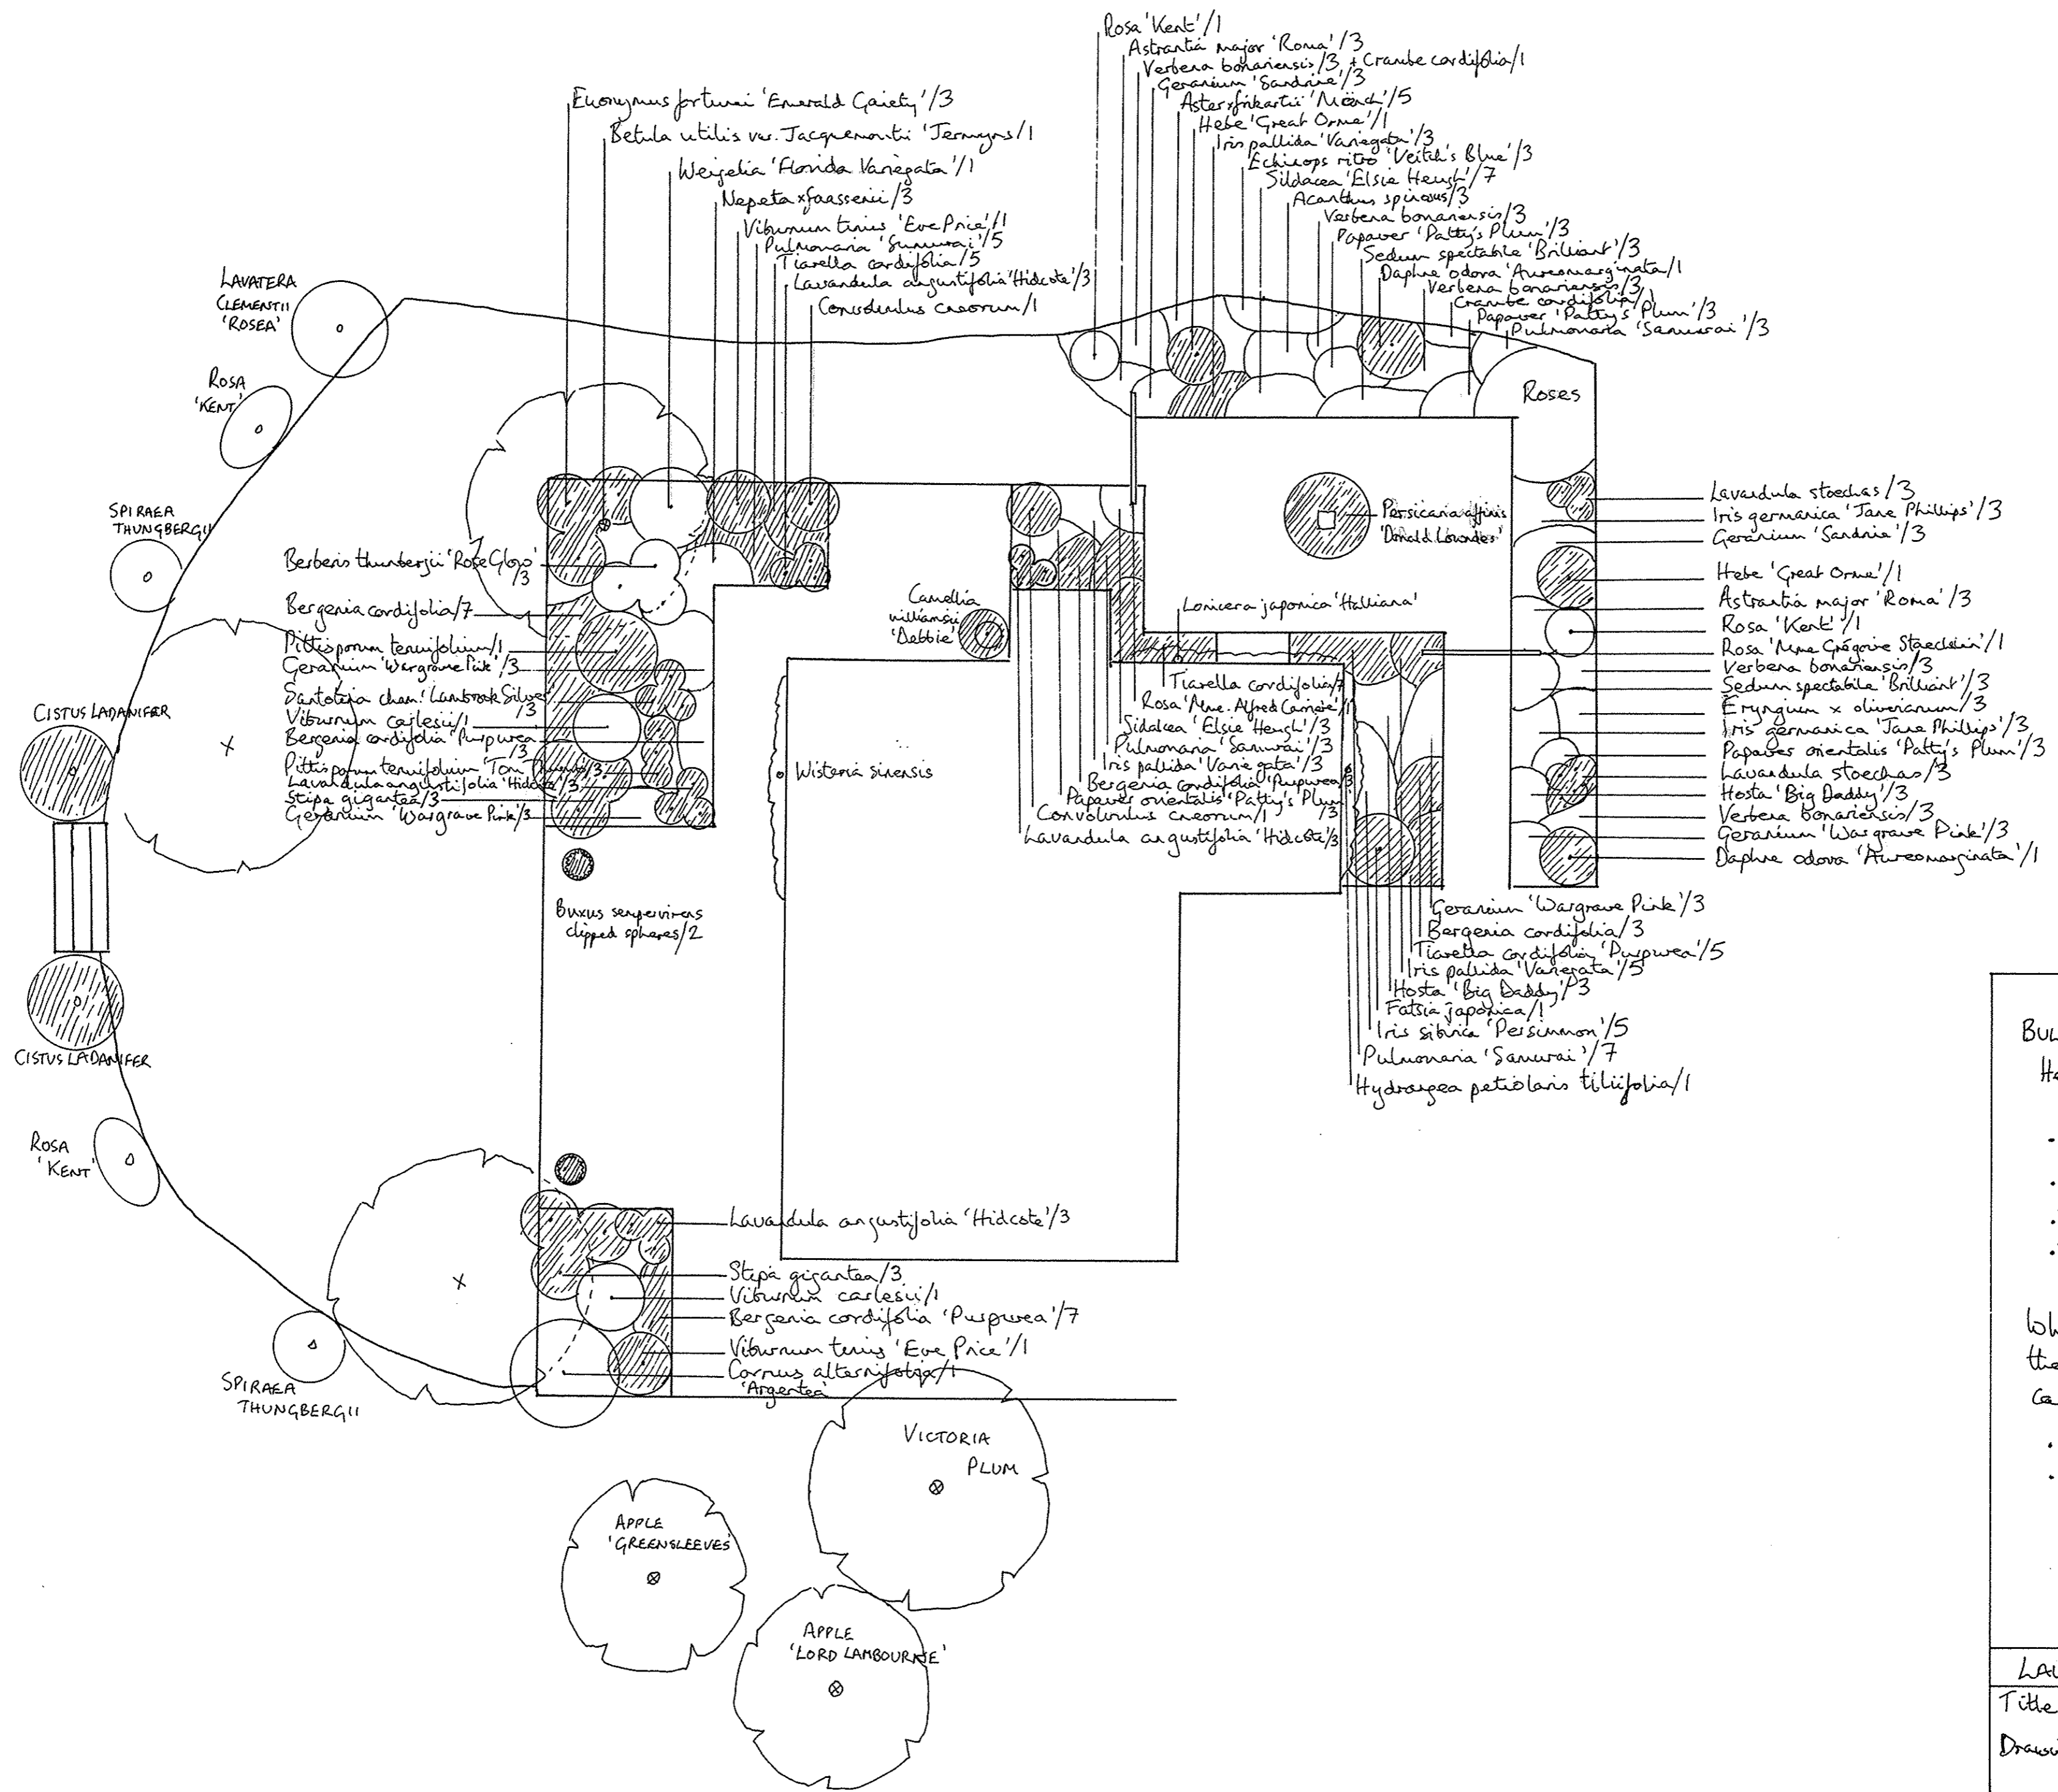 Rosa 'Kent'/1
Astrantia major 'Roma'/3
Verbena bonariensis/3 + Crambe cordifolia/1
Geranium 'Sandrine'/3
Aster x frikartii 'Mönch'/5
Hebe 'Great Orme'/1
Iris pallida 'Variegata'/3
Echinops ritro 'Veitch's Blue'/3
Sildacea 'Elsie Heugh'/7
Acanthus spinosus/3
Verbena bonariensis/3
Papaver 'Patty's Plum'/3
Sedum spectabile 'Brilliant'/3
Daphne odora 'Aureomarginata/1
Verbena bonariensis/3
Crambe cordifolia/1
Papaver 'Patty's Plum'/3
Pulmonaria 'Samurai'/3
Roses
Euonymus fortunei 'Emerald Gaiety'/3
Betula utilis var. Jacquemontii 'Jermyns/1
Weigelia 'Florida Variegata'/1
Nepeta x faassenii/3
Viburnum tinus 'Eve Price'/1
Pulmonaria 'Samurai'/5
Tiarella cordifolia/5
Lavandula angustifolia 'Hidcote'/3
Convolvulus cneorum/1
LAVATERA
CLEMENTII
'ROSEA'
ROSA
'KENT'
SPIRAEA
THUNGBERGII
CISTUS LADANIFER
CISTUS LADANIFER
ROSA
'KENT'
SPIRAEA
THUNGBERGII
Berberis thunbergii 'Rose Glow'
/3
Bergenia cordifolia/7
Pittisporum tenuifolium/1
Geranium 'Wargrave Pink'/3
Santolina cham. 'Lambrook Silver'
/3
Viburnum carlesii/1
Bergenia cordifolia 'Purpurea
/3
Pittisporum tenuifolium 'Tom Thumb'/3
Lavandula angustifolia 'Hidcote'/3
Stipa gigantea/3
Geranium 'Wargrave Pink'/3
Buxus sempervirens
clipped spheres/2
Camellia
williamsii
'Debbie'
Wisteria sinensis
Persicaria affinis
'Donald Lowndes'
Lonicera japonica 'Halliana'
Tiarella cordifolia/7
Rosa 'Mme. Alfred Carrière'/1
Sidalcea 'Elsie Heugh'/3
Pulmonaria 'Samurai'/3
Iris pallida 'Variegata'/3
Bergenia cordifolia 'Purpurea/3
Papaver orientalis 'Patty's Plum
/3
Convolvulus cneorum/1
Lavandula angustifolia 'Hidcote'/3
Lavandula stoechas/3
Iris germanica 'Jane Phillips'/3
Geranium 'Sandrine'/3
Hebe 'Great Orme'/1
Astrantia major 'Roma'/3
Rosa 'Kent'/1
Rosa 'Mme Grégoire Staechelin'/1
Verbena bonariensis/3
Sedum spectabile 'Brilliant'/3
Eryngium x oliverianum/3
Iris germanica 'Jane Phillips'/3
Papaver orientalis 'Patty's Plum'/3
Lavandula stoechas/3
Hosta 'Big Daddy'/3
Verbena bonariensis/3
Geranium 'Wargrave Pink'/3
Daphne odora 'Aureomarginata'/1
Geranium 'Wargrave Pink'/3
Bergenia cordifolia/3
Tiarella cordifolia 'Purpurea'/5
Iris pallida 'Variegata'/5
Hosta 'Big Daddy'/3
Fatsia japonica/1
Iris sibirica 'Persimmon'/5
Pulmonaria 'Samurai'/7
Hydrangea petiolaris tiliifolia/1
Lavandula angustifolia 'Hidcote'/3
Stipa gigantea/3
Viburnum carlesii/1
Bergenia cordifolia 'Purpurea'/7
Viburnum tinus 'Eve Price'/1
Cornus alternifolia/1
'Argentea'
VICTORIA
PLUM
APPLE
'GREENSLEEVES'
APPLE
'LORD LAMBOURNE'
BUL
the
ca
LAU
Title
Drawi